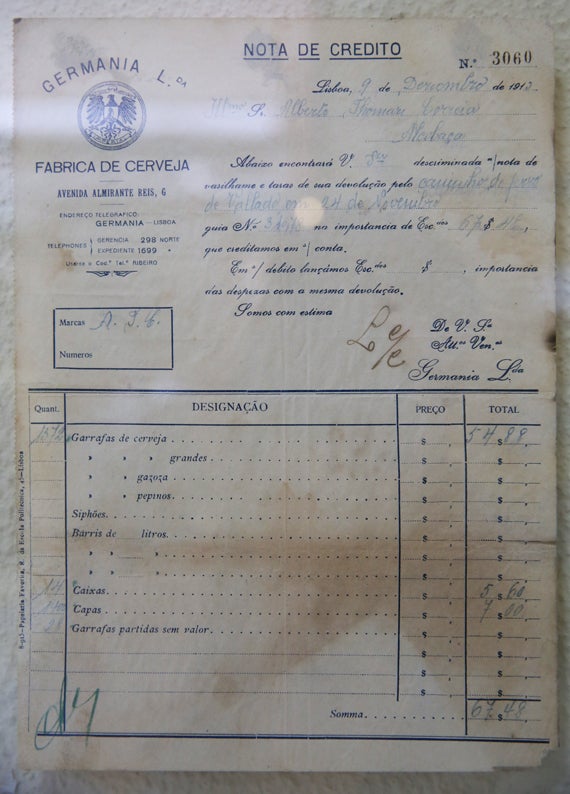 NOTA DE CREDITO
N.º 3060
GERMANIA L.DA
FABRICA DE CERVEJA
AVENIDA ALMIRANTE REIS, 6
ENDEREÇO TELEGRAFICO:
GERMANIA — LISBOA
TELEPHONES GERENCIA 298 NORTE
EXPEDIENTE 1699 »
Usa-se o Cod.º Tel.º RIBEIRO
Lisboa, 9 de Dezembro de 1913
Illmo Sr. Alberto Thomaz Correia
Abaixo encontrará V. Sra descriminada s/ nota de
vasilhame e taras de sua devolução pelo caminho de ferro
de Vallado em 24 de Novembro
guia N.º na importancia de Esc.dos 67$48,
que creditamos em s/ conta.
Em s/ debito lançámos Esc.dos $ , importancia
das despezas com a mesma devolução.
Somos com estima
De V. Sa
Att.os Ven.es
Germania L.da
Marcas A. T. C.
Numeros
Quant. DESIGNAÇÃO PREÇO TOTAL
1372 Garrafas de cerveja $ , 54$88,
» » » grandes $ , $ ,
» » gazoza $ , $ ,
» » pepinos $ , $ ,
Siphões $ , $ ,
Barris de litros $ , $ ,
» » » $ , $ ,
» » » $ , $ ,
14 Caixas $ , 5$60,
1400 Capas $ , 7$00,
28 Garrafas partidas sem valor $ , $ ,
$ , $ ,
$ , $ ,
$ , $ ,
Somma 67$48,
8-913—Papelaria Favorita, R. da Escola Politecnica, 41—Lisboa